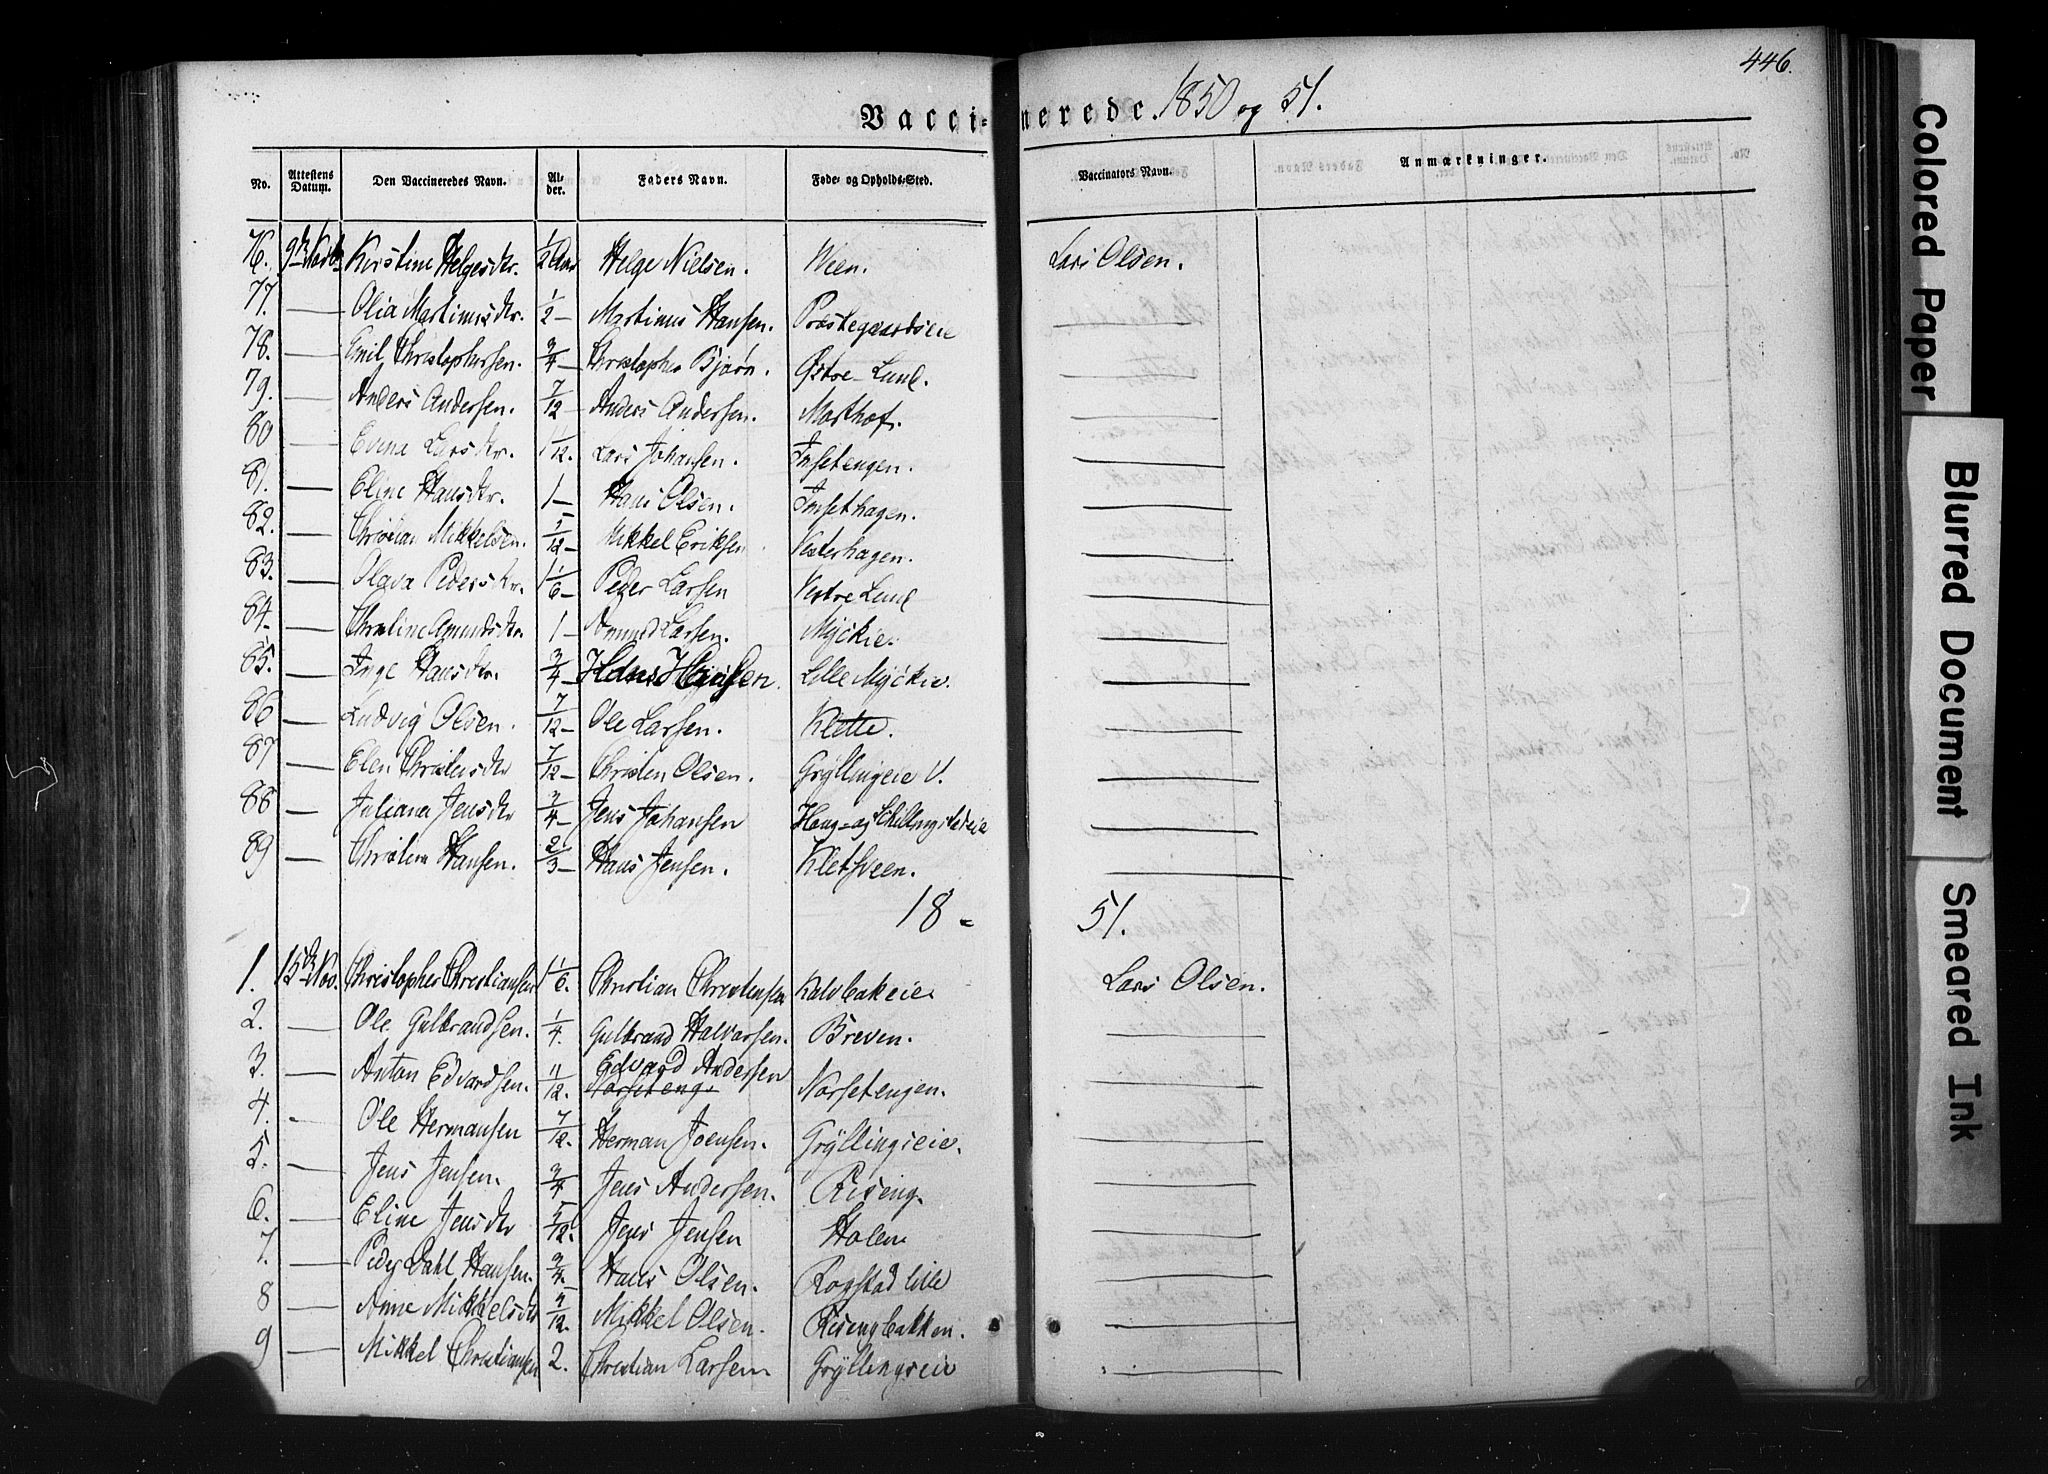 446.
Vaccinerede. 1850 og 51.
No. Attestens Datum. Den Vaccineredes Navn. Alder. Faders Navn. Føde- og Opholds-Sted. Vaccinators Navn. Anmærkninger.
76. 9de Kirstine Helgesdtr. 1/2 Aar Helge Nielsen. Lars Olsen.
77. — Olia Martinusdtr. 1/2 — Martinus Hansen. Præstegaardseie —
78. — Emil Christophersen. 3/4 — Christopher Bjørn. Østre Lund. —
79. — Anders Andersen. 7/12 — Anders Andersen. Morthof. —
80 — Evine Larsdtr. Lars Johansen. Insetengen. —
81. — Eline Hansdtr. 1 — Hans Olsen. Insethagen. —
82. — Christian Mikkelsen. 5/12 — Mikkel Eriksen Vesterhagen. —
83. — Olava Pedersdtr. 1 1/6 — Peder Larsen Vestre Lund —
84. — Amundsdtr. 1 — Amund Larsen. Myckie. —
85. — Inge Hansdtr. 3/4 — Hans Hansen. Lille Myckie. —
86 — Ludvig Olsen. 7/12 — Ole Larsen. Klette. —
87 — Elen Christensdtr 7/12 — Christen Olsen. Gryllingeie V. —
88 — Juliana Jensdtr 3/4 — Jens Johansen Haug- og —
89 — Hansen. 2/3 — Hans Jensen. Kletsveen. —
18 - 51.
1. 15de Nov. Christopher Christiansen 1 1/6. Christian Christensen Kalvbakeie. Lars Olsen.
2. — Ole Gulbrandsen. 1/4. Gulbrand Halvorsen. Breven. —
3. — Anton Edvardsen. 11/12. Edvard Andersen Norsetengen. —
Norseteng.
4. - Ole Hermansen 7/12. Herman Joensen. Gryllingseie. —
5. — Jens Jensen. 3/4 Jens Andersen. Riseng. —
6. — Eline Jensdtr 5/12. Jens Jensen Holen —
7. — Peder Dahl Hansen. 3/4. Hans Olsen. Rogstad lille —
8 — Anne Mikkelsdtr Mikkel Olsen. Risengbakken. —
9 — Mikkel Christiansen 2. Christian Larsen Gryllingseie —
Colored Paper
Blurred Document
Smeared Ink